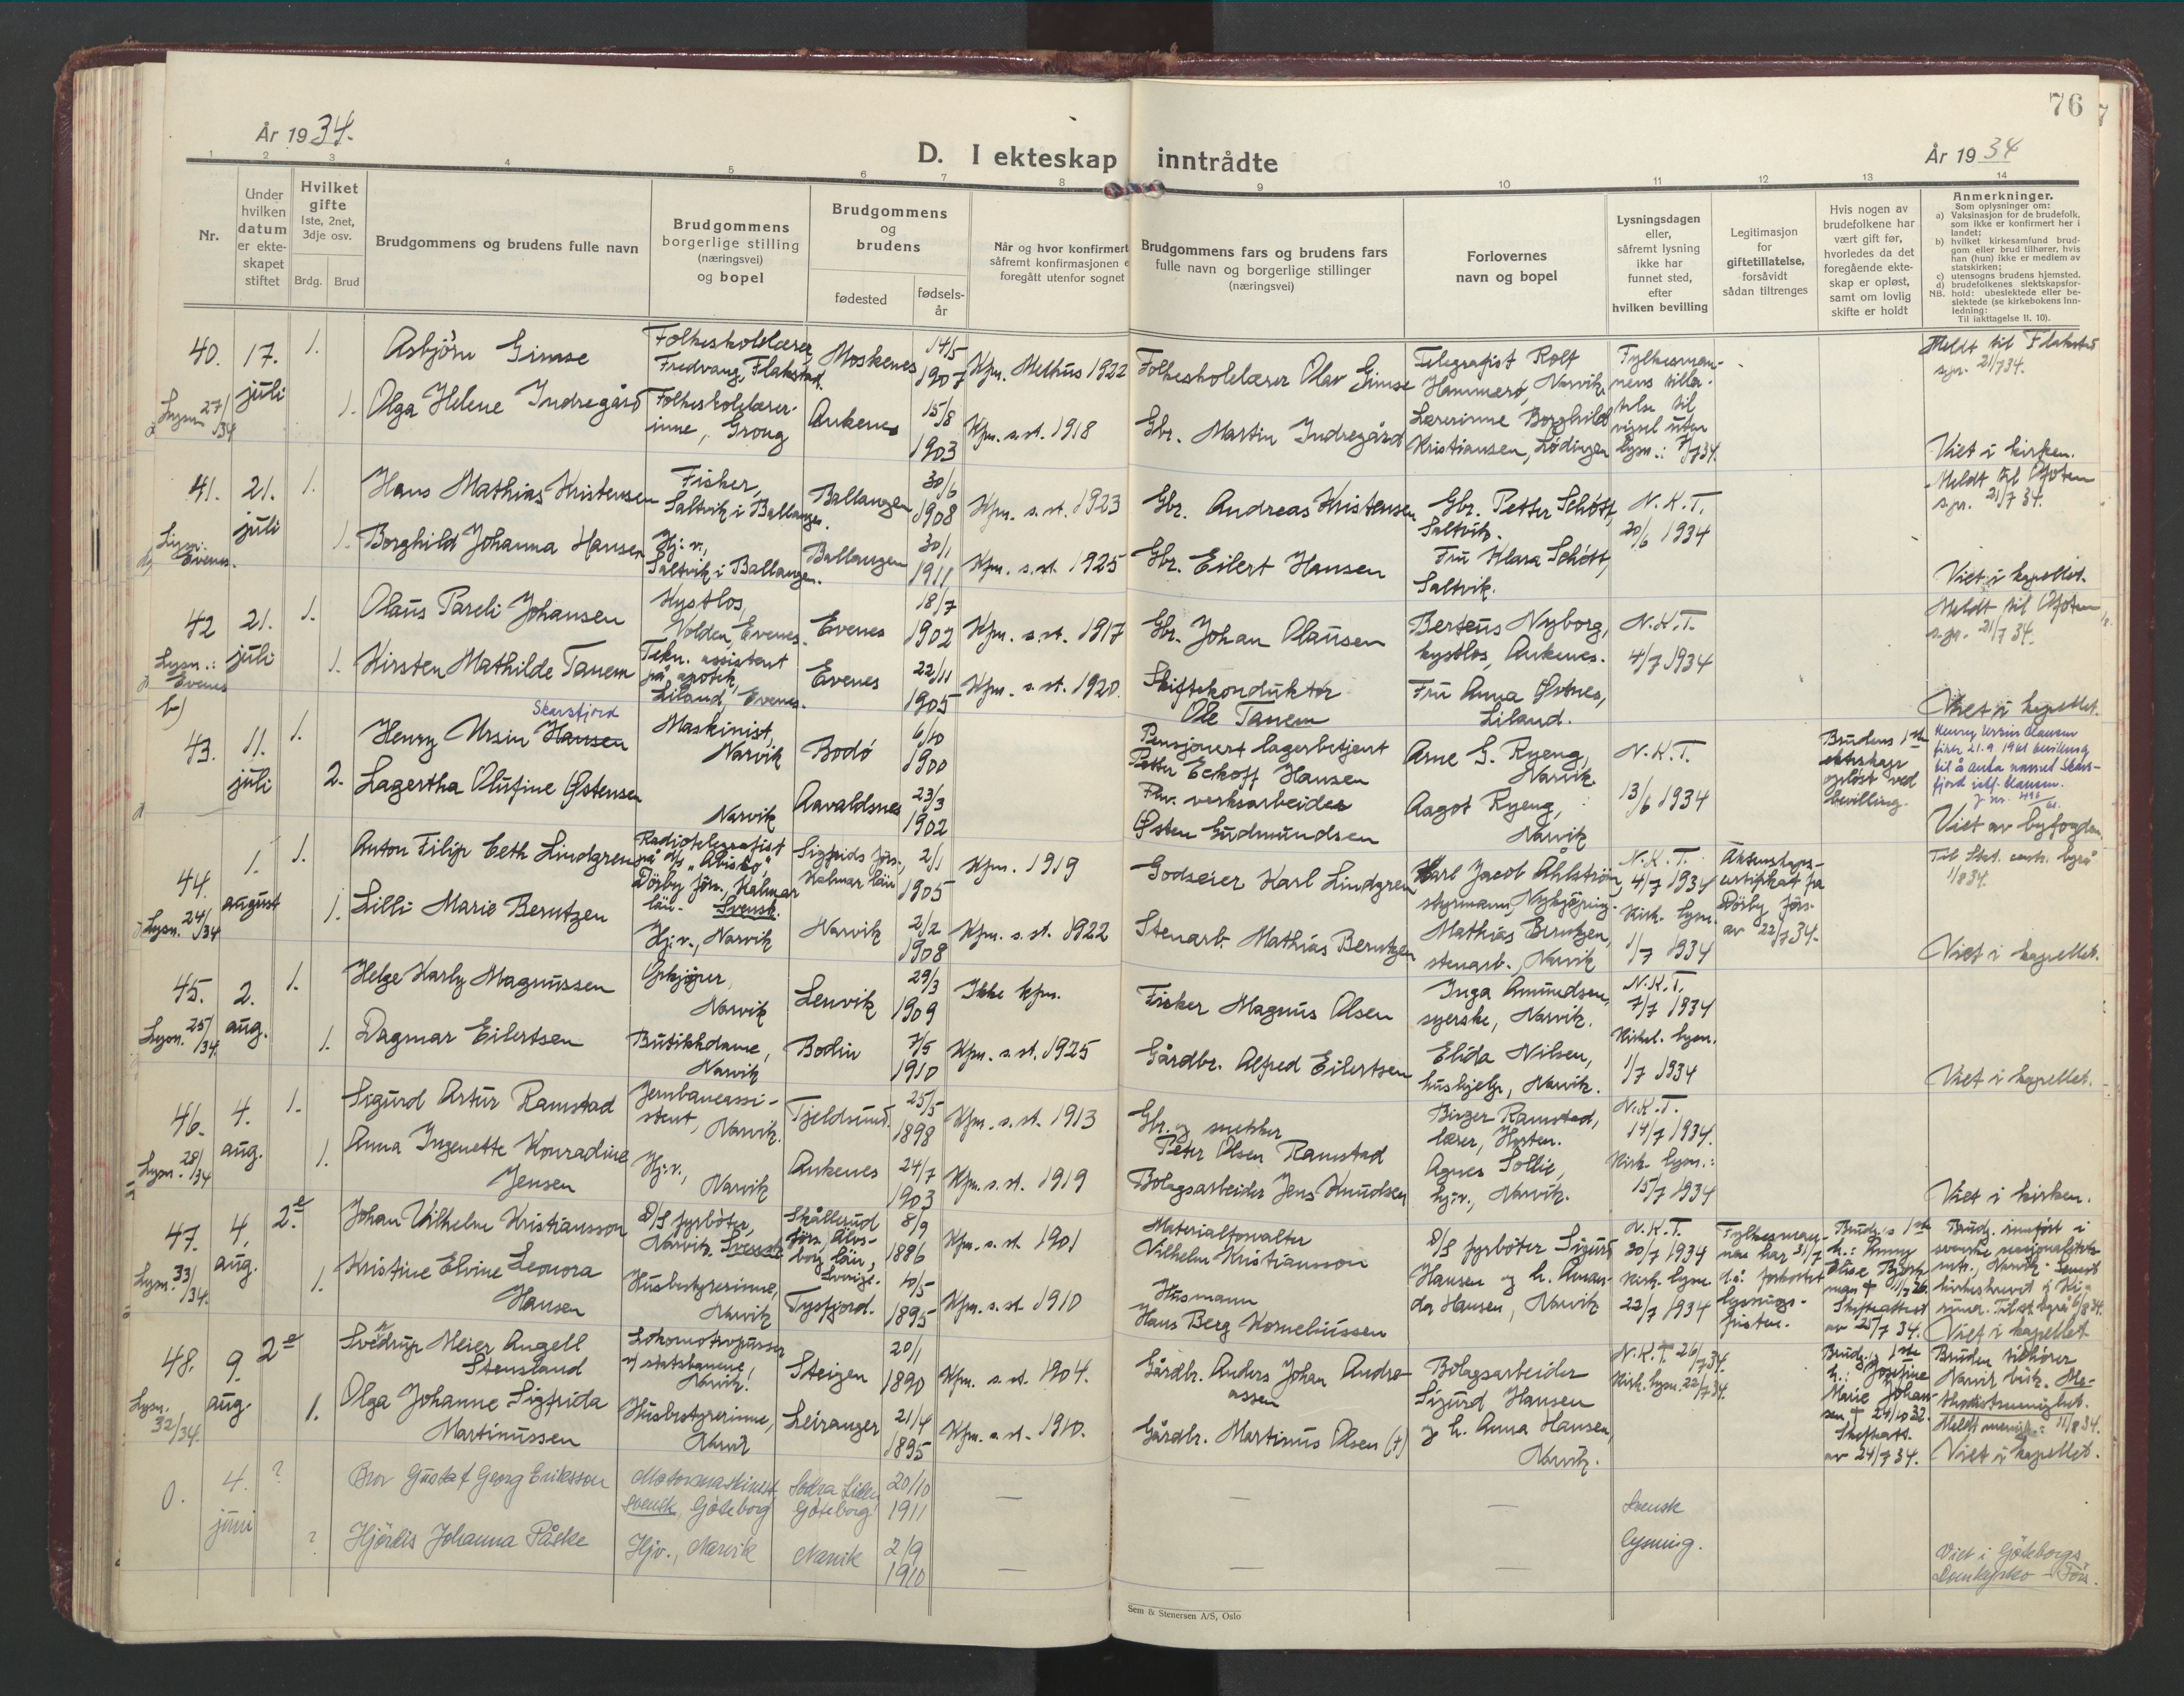 76
År 1934.
D. I ekteskap inntrådte
År 1934
1 2 3 4 5 6 7 8 9 10 11 12 13 14
Nr.
Under hvilken datum er ekteskapet stiftet
Hvilket gifte 1ste, 2net, 3dje osv.
Brdg. Brud
Brudgommens og brudens fulle navn
Brudgommens borgerlige stilling (næringsvei) og bopel
Brudgommens og brudens
fødested
fødselsår
Når og hvor konfirmert
såfremt konfirmasjonen e
foregått utenfor sognet
Brudgommens fars og brudens fars
fulle navn og borgerlige stillinger
(næringsvei)
Forlovernes
navn og bopel
Lysningsdagen
eller,
såfremt lysning
ikke har
funnet sted,
efter
hvilken bevilling
Legitimasjon
for
giftetillatelse,
forsåvidt
sådan tiltrenges
Hvis nogen av
brudefolkene har
vært gift før,
hvorledes da det
foregående ekte-
skap er opløst,
samt om lovlig
skifte er holdt
Anmerkninger.
Som oplysninger om:
a) Vaksinasjon for de brudefolk,
som ikke er konfirmert her i
landet;
b) hvilket kirkesamfund brud-
gom eller brud tilhører, hvis
han (hun) ikke er medlem av
statskirken;
c) utensogns brudens hjemsted.
d) brudefolkenes slektskapsfor-
NB. hold: ubeslektede eller be-
slektede (se kirkebokens Inn-
ledning:
Til iakttagelse II, 10).
40. 17. juli
Lysn. 27/34
1. Asbjörn Gimse
Folkeskolelærer, Fredvang, Flakstad.
Moskenes
14/5 1907
Kfm. Melhus 1922
Folkeskolelærer Olav Gimse
Telegrafist Rolf Hammerö, Narvik
Fylkesmannens tillatelse til vigsel uten lysn.: 7/7 34.
Meldt til Flakstad spr. 21/7 34.
1. Olga Helene Indregård
Folkeskolelærerinne, Grong
Ankenes
15/8 1903
Kfm. s. st. 1918
Gbr. Martin Indregård
Lærerinne Borghild Kristiansen, Lödingen
Viet i kirken.
41. 21. juli
Lysn: Evenes.
1. Hans Mathias Kristensen
Fisker, Saltvik i Ballangen.
Ballangen
30/6 1908
Kfm. s. st. 1923
Gbr. Andreas Kristensen
Gbr. Petter Schött, Saltvik.
N.K.T. 20/6 1934
Meldt til Ofoten s.pr. 21/7 34.
1. Borghild Johanna Hansen
Hj: v., Saltvik i Ballangen.
Ballangen
30/1 1911
Kfm. s. st. 1925
Gbr. Eilert Hansen
Fru Klara Schött, Saltvik.
Viet i kapellet.
42 21. juli
Lysn.: Evenes
1. Olaus Pareli Johansen
Kystlos, Volden, Evenes.
Evenes
18/7 1902
Kfm. s. st. 1917
Gbr. Johan Olausen
Berteus Nyborg, kystlos, Ankenes.
N.K.T. 4/7 1934
Meldt til Ofoten s.pr. 21/7 34.
1. Kirsten Mathilde Tanem
Tekn. assistent på apotek, Liland, Evenes.
Evenes
22/11 1905
Kfm. s. st. 1920.
Skiftekonduktör Ole Tanem
Fru Anna Østnes, Liland.
Viet i kapellet.
b)
43. 11. juli
1. Henry Ursin Hansen
Skarsfjord
Maskinist, Narvik
Bodö
6/10 1900
Pensjonert lagerbetjent Petter Eckoff Hansen
Arne G. Ryeng, Narvik.
N.K.T. 13/6 1934
Brudens 1ste ekteskap oplöst ved bevilling.
2. Lagertha Olufine Østensen
Narvik
Aavaldsnes
23/3 1902
Fhv. verksarbeider Østen Gudmundsen
Aagot Ryeng, Narvik
Viet av byfogden.
44. 1. august
Lysn. 24/34
1. Anton Filip Ceth Lindgren
Radiotelegrafist på d/s "Abisko," Dörby förs., Kalmar län. Svensk.
Sigfrids förs., Kalmar län
2/1 1905
Kfm. 1919
Godseier Karl Lindgren
Karl Jacob Åhlström, styrmann, Nykjöping.
N.K.T. 4/7 1934
Kirk. lysn. 1/7 1934
Äktenskapscertifikat fra Dörby förs. av 22/7 34.
Til Stat. centr. byrå 1/8 34.
1. Lilli Marie Berntzen
Hj: v., Narvik
Narvik
2/2 1908
Kfm. s. st. 1922
Stenarb. Mathias Berntzen
Mathias Berntzen, stenarb., Narvik
Viet i kapellet.
45. 2. aug.
Lysn. 25/34.
1. Helge Karly Magnussen
Opkjöper, Narvik
Lenvik
29/3 1909
Ikke kfm.
Fisker Magnus Olsen
Inga Amundsen, syerske, Narvik.
N.K.T. 7/7 1934
Kirkel. lysn. 1/7 1934
1. Dagmar Eilertsen
Butikkdame, Narvik
Bodin
7/5 1910
Kfm. s. st. 1925
Gårdbr. Alfred Eilertsen
Elida Nilsen, hushjelp, Narvik.
Viet i kapellet.
46. 4. aug.
Lysn. 28/34
1. Sigurd Artur Ramstad
Jernbaneassistent, Narvik.
Tjeldsund.
25/5 1898
Kfm. s. st. 1913
Gbr. og snekker Peter Olsen Ramstad
Birger Ramstad, lærer, Horten.
N.K.T. 14/7 1934.
Kirk. lysn.: 15/7 1934
1. Anna Ingenette Konradine Jensen
Hj: v., Narvik
Ankenes
24/7 1903
Kfm. s. st. 1919
Bolagsarbeider Jens Knudsen
Agnes Sollie, hj: v., Narvik.
Viet i kirken.
47. 4. aug.
Lysn. 33/34.
2e. Johan Vilhelm Kristiansson
D/S fyrböter, Narvik. Svensk
Skållerud förs., Älvsborg län, Sverige.
8/9 1886
Kfm. s. st. 1901
Materialforvalter Vilhelm Kristiansson
D/S fyrböter Sigurd Hansen og h. Amanda Hansen, Narvik
N.K.T. 30/7 1934
Kirk. lysn. 22/7 1934
Fylkesmannen har 31/7 d.å. forkortet lysningsfristen.
Brudg.s 1ste h.: Anny Elise Björkman † 11/7 26. Skifteattest av 25/7 34.
1. Kristine Elvine Leonora Hansen
Husbestyrerinne, Narvik
Tysfjord.
10/5 1895
Kfm. s. st. 1910
Husmann Hans Berg Korneliussen
Viet i kapellet
48. 9. aug.
Lysn. 32/34.
2e Sverdrup Meier Angell Stensland
Lokomotivpusser v/ statsbanene, Narvik.
Steigen
20/1 1890
Kfm. s. st. 1904.
Gårdbr. Anders Johan Andreassen
Bolagsarbeider Sigurd Hansen og h. Anna Hansen, Narvik.
N.K.T. 26/7 34.
Kirk. lysn. 22/7 34.
Brudg.s 1ste h.: Josefine Marie Johansen † 24/10 32. Skifteatt. av 24/7 34.
Bruden tilhører Narvik bisk. Metodistmenighet.
1. Olga Johanne Sigfrida Martinussen
Husbestyrerinne, Narvik
Leiranger
21/4 1895
Kfm. s. st. 1910.
Gårdbr. Martinus Olsen (†)
Viet i kapellet.
0. 4. juni
? Bror Gustaf Georg Eriksson
Motormaskinist, svensk, Göteborg
Göteborg
20/10 1911
—
Svensk lysning.
? Hjördis Johanna Påske
Hjv., Narvik
Narvik
2/9 1910
—
Viet i Göteborgs Domkyrko-Förs.
Sem & Stenersen A/S, Oslo